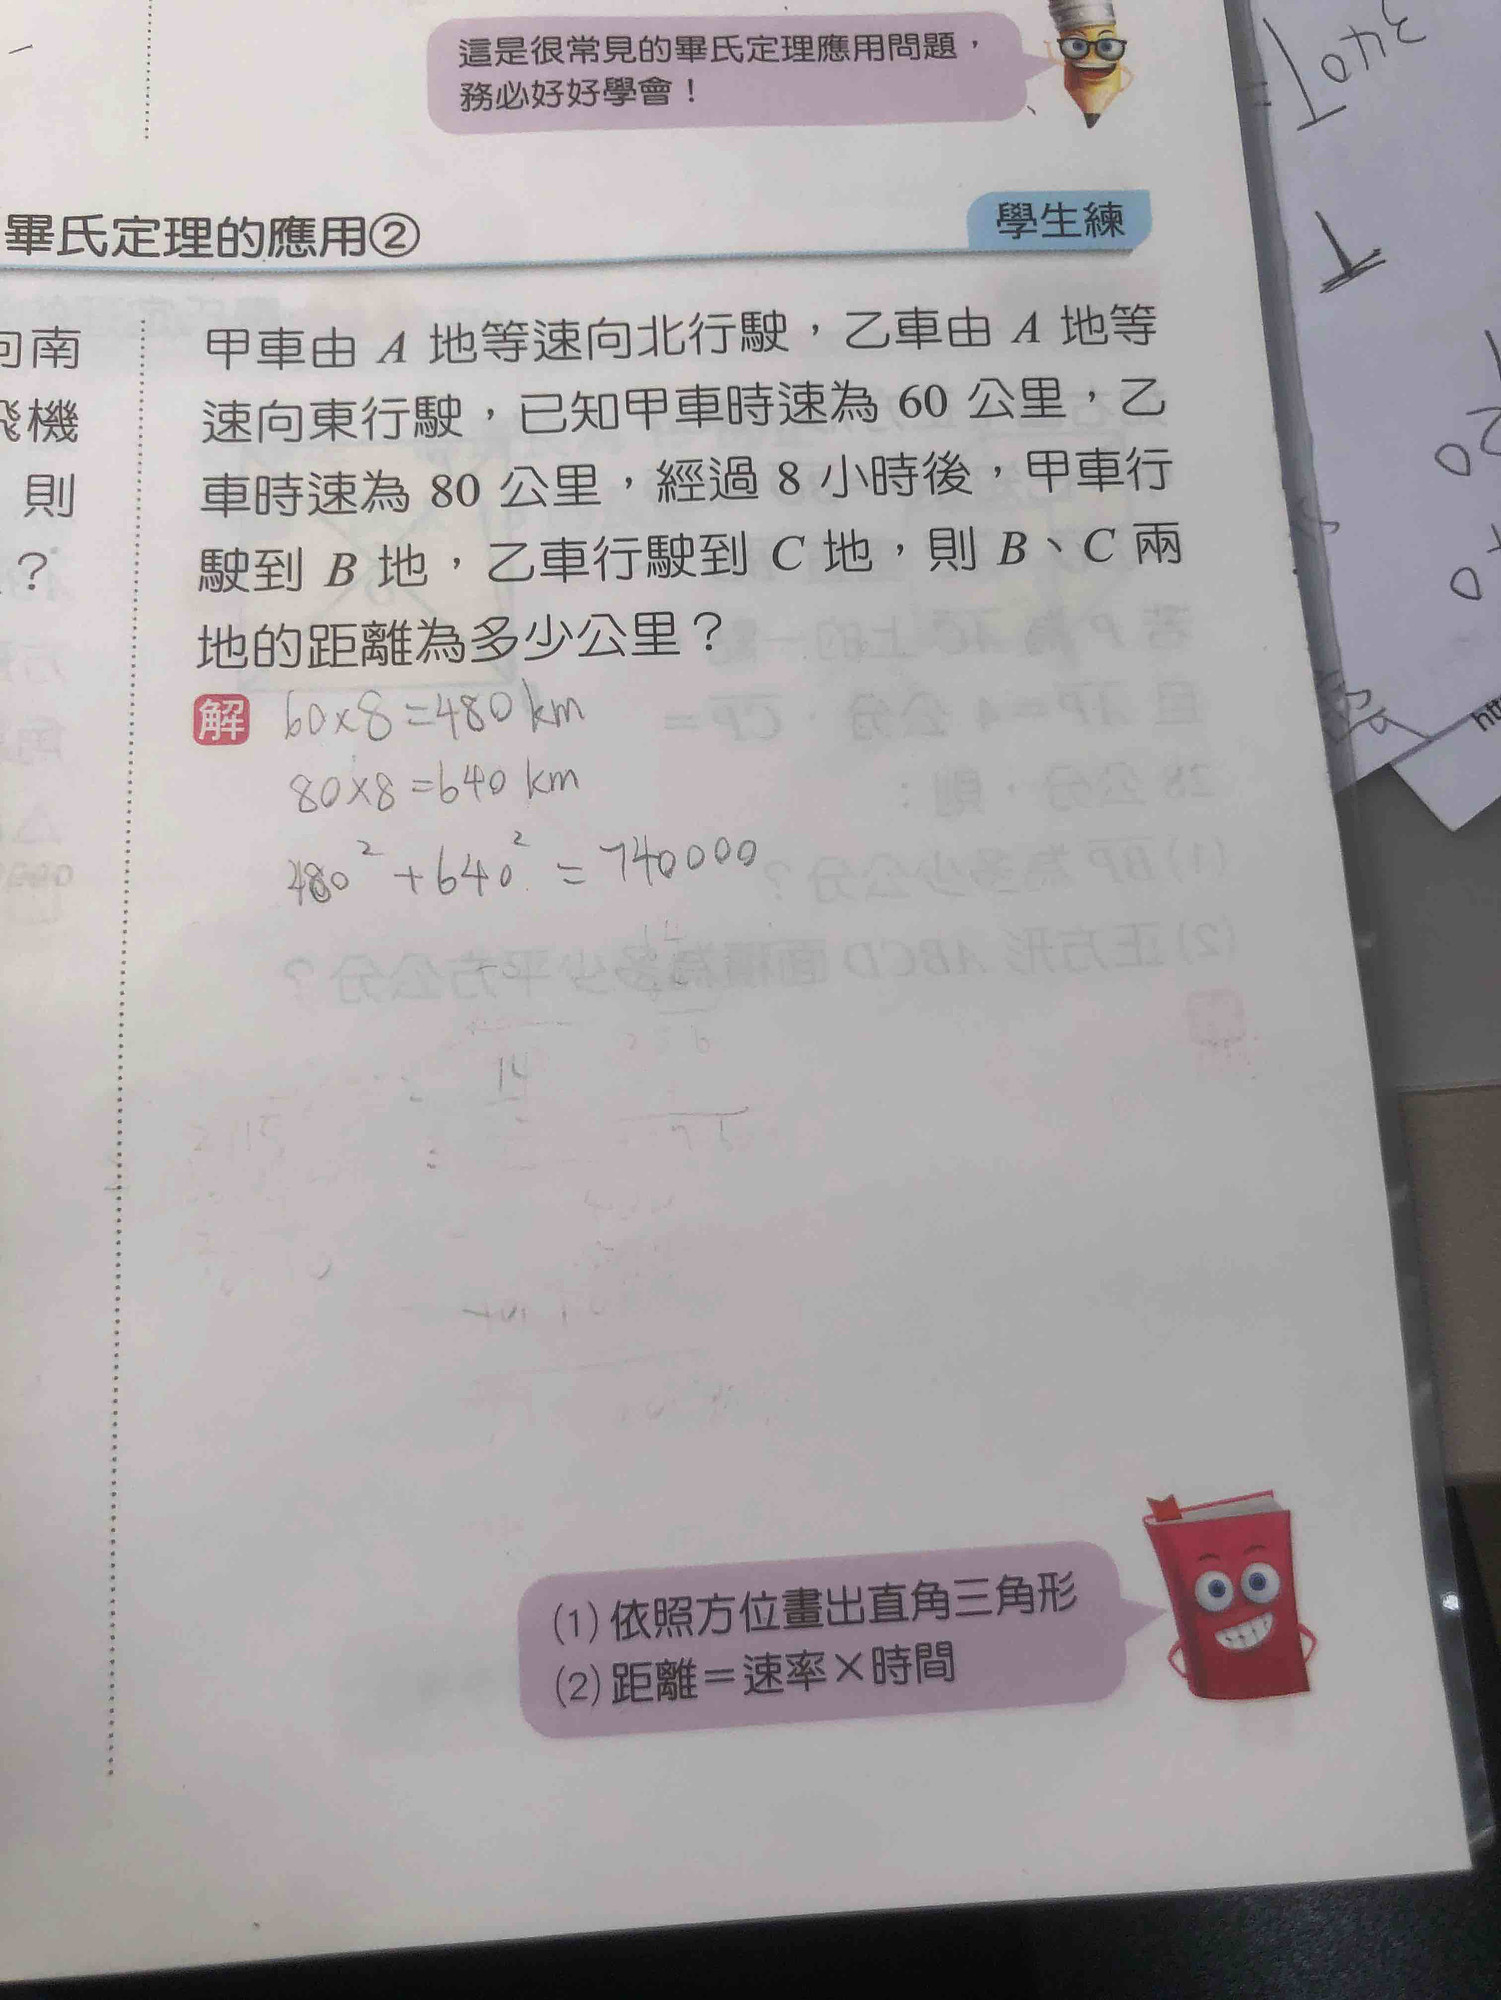 這是很常見的畢氏定理應用問題，
務必好好學會！
畢氏定理的應用②
學生練
向南
飛機
則
？
甲車由 A 地等速向北行駛，乙車由 A 地等
速向東行駛，已知甲車時速為 60 公里，乙
車時速為 80 公里，經過 8 小時後，甲車行
駛到 B 地，乙車行駛到 C 地，則 B、C 兩
地的距離為多少公里？
解 60×8=480km
80×8=640km
480²+640²=740000
(1) 依照方位畫出直角三角形
(2) 距離＝速率×時間